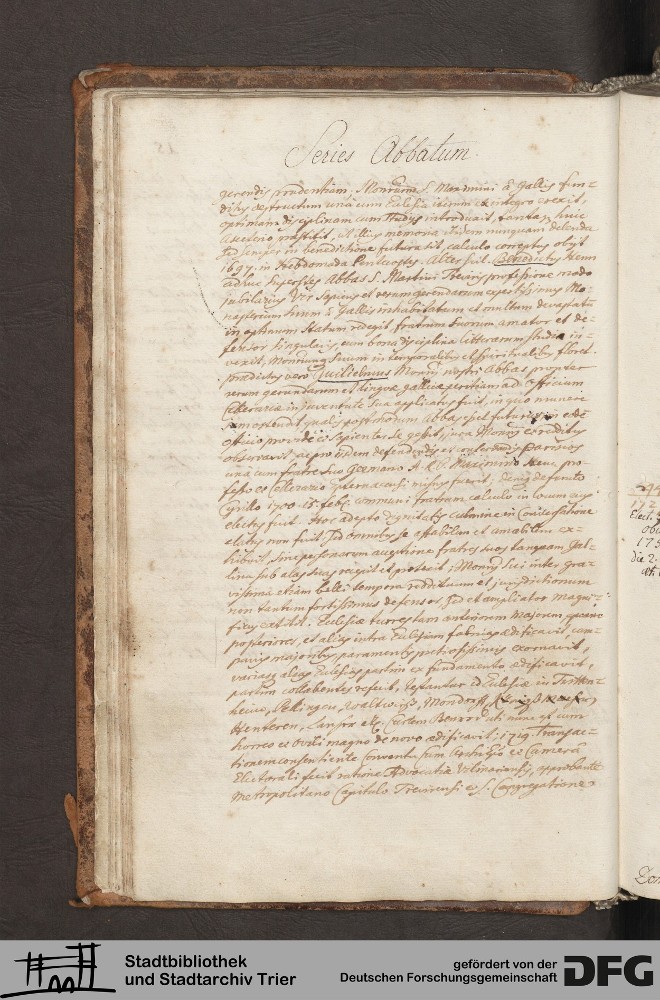 Series Abbatum
gerendis prudentiam. Monrium S. Maximini à Gallis fun=
ditus destructum unà cum Eclesia iterum ex integro erexit,
optimam disciplinam cum studijs introduxit, tantaq huic
Asceterio præstitit, ut illius memoria ibidem nunquam delenda
sed semper in benedictione futura sit, calculo correptus obijt
1697. in Hebdomada Pentecostes. Alter fuit Benedictus Henn
adhuc superstes Abbas S. Martini Treviris professione modo
jubilarius Vir sapiens et rerum gerendarum expertissimus Mo=
nasterium suum à Gallis inhabitatum et multum devastatu
in optimum statum redegit, fratrum suorum amator et de=
fensor singularis, cum bona disciplina litterarum studia in=
vexit, Monrium suum in temporalibus et spiritualibus floret.
prædictus verò Guilielmus Monrij nostri Abbas propter
rerum gerendarum et linguæ gallicæ peritiam ad officium
Cellerariæ in juventute sua applicatus fuit, in quo munere
jam ostendit qualis postmodum Abbas esset futurus in
officio providè et sapienter se gessit, jura Monrij et redditus
observavit ac pro ijsdem defendendis et conservandis Parisios
unà cum fratre suo germano A. R. D. Maximino Henn pro=
fesso et Cellerario missus fuerit, deniq defuncto
Cyrillo 1700. 15. febr. communi fratrum calculo in locum ejus
electus fuit. Hoc adepto dignitatis culmine in Conversatione
elatus non fuit sed omnibus se affabilem et amabilem ex=
hibuit, sine personarum acceptione fratres suos tanquam Gal=
lina sub alas suas recepit et protexit; Monrij sui inter gra=
vissima etiam belli tempora reddituum et jurisdictionum
non tantum fortissimus defensor sed et ampliator magni=
ficus extitit. Eclesiæ turres tam anteriorem majorem, quam
posteriores, et alias intra Eclesiam fabricas ædificavit, cam=
panis majoribus, paramentis pretiosissimis exornavit,
varias alias Eclesias partim ex fundamento ædificavit,
partim collabentes refecit, testantur id Eclesiæ in
Mondorff,
Henteren, Canpræ etc. Curtem Beurer uti nunc est cum
horreo et ovili magno de novo ædificavit; 1719. Transac=
tionem consentiente Conventu cum Archiepo et Camerâ
Electorali fecit ratione Advocatiæ approbante
Metropolitano Capitulo Trevirensi et S. Congregatione
1727
Elect.
17
die 2.
Stadtbibliothek
und Stadtarchiv Trier
gefördert von der
Deutschen Forschungsgemeinschaft
DFG